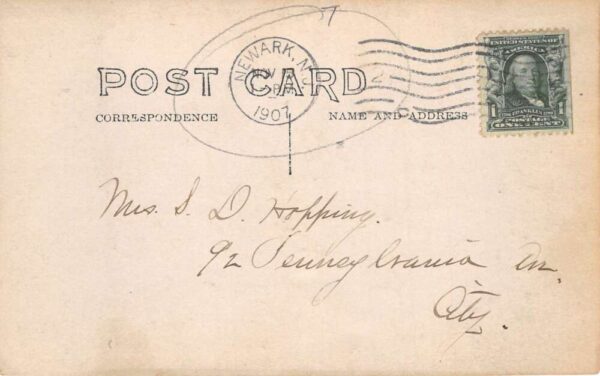 57
NEWARK, N.J.
NOV
PM
1907
UNITED STATES OF AMERICA
POST CARD
CORRESPONDENCE
NAME AND ADDRESS
1 FRANKLIN 1
POSTAGE
ONE CENT
Mrs. S. D. Hopping.
92 Pennsylvania Av.
City.